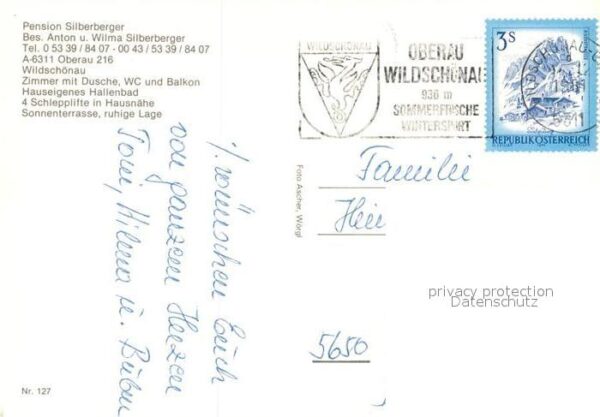 Pension Silberberger
Bes. Anton u. Wilma Silberberger
Tel. 0 53 39 / 84 07 - 00 43 / 53 39 / 84 07
A-6311 Oberau 216
Wildschönau
Zimmer mit Dusche, WC und Balkon
Hauseigenes Hallenbad
4 Schlepplifte in Hausnähe
Sonnenterrasse, ruhige Lage
wünschen Euch
von ganzem Herzen
Toni, u.
Nr. 127
Foto Ascher, Wörgl
WILDSCHÖNAU
OBERAU
WILDSCHÖNAU
936 m
SOMMERFRISCHE
WINTERSPORT
3 S
REPUBLIK ÖSTERREICH
Familie
5650
privacy protection
Datenschutz